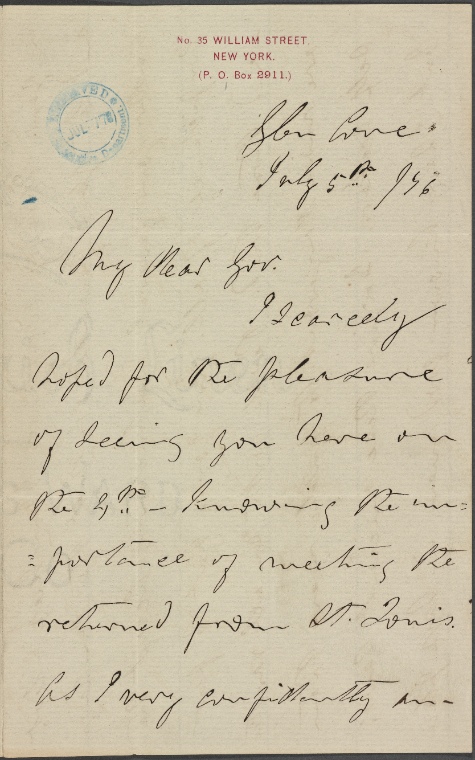 No. 35 WILLIAM STREET
NEW YORK.
(P. O. Box 2911.)
Glen Cove
July 5th /76
My Dear Gov.
I scarcely
hoped for the pleasure
of seeing you here on
the 4th - knowing the im=
=portance of meeting the
returned from St. Louis.
As I very confidently an-